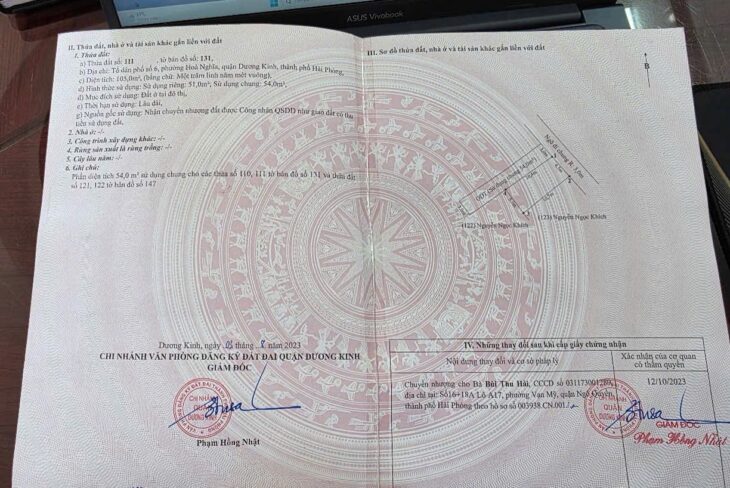 ASUS Vivobook
II. Thửa đất, nhà ở và tài sản khác gắn liền với đất
1. Thửa đất:
a) Thửa đất số: 111 , tờ bản đồ số: 131,
b) Địa chỉ: Tổ dân phố số 6, phường Hoà Nghĩa, quận Dương Kinh, thành phố Hải Phòng,
c) Diện tích: 105,0m², (bằng chữ: Một trăm linh năm mét vuông),
d) Hình thức sử dụng: Sử dụng riêng: 51,0m²; Sử dụng chung: 54,0m²,
đ) Mục đích sử dụng: Đất ở tại đô thị,
e) Thời hạn sử dụng: Lâu dài,
g) Nguồn gốc sử dụng: Nhận chuyển nhượng đất được Công nhận QSDĐ như giao đất có thu
tiền sử dụng đất,
2. Nhà ở: -/-
3. Công trình xây dựng khác: -/-
4. Rừng sản xuất là rừng trồng: -/-
5. Cây lâu năm: -/-
6. Ghi chú:
Phần diện tích 54,0 m² sử dụng chung cho các thửa số 110, 111 tờ bản đồ số 131 và thửa đất
số 121, 122 tờ bản đồ số 147
Dương Kinh, ngày 2023
CHI NHÁNH VĂN PHÒNG ĐĂNG KÝ ĐẤT ĐAI QUẬN DƯƠNG KINH
GIÁM ĐỐC
CHI NHÁNH
QUẬN
DƯƠNG KINH
Phạm Hồng Nhật
III. Sơ đồ thửa đất, nhà ở và tài sản khác gắn liền với đất
B
Ngõ đi chung
(122) Nguyễn Ngọc Khích
(123) Nguyễn Ngọc Khích
IV. Những thay đổi sau khi cấp giấy chứng nhận
Nội dung thay đổi và cơ sở pháp lý
Xác nhận của cơ quan
có thẩm quyền
Chuyển nhượng cho Bà Bùi Thu Hải, CCCD số
địa chỉ tại: Số16+18A Lô A17, phường Vạn Mỹ, quận Ngô Quyền,
thành phố Hải Phòng theo hồ sơ số 003938.CN.001.
12/10/2023
CHI NHÁNH
QUẬN
DƯƠNG KINH
GIÁM ĐỐC
Phạm Hồng Nhật